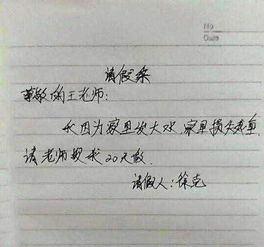 No
Date
请假条
尊敬的王老师：
我因为家里发大水，家里损失惨重
请老师批我20天假
请假人：徐克